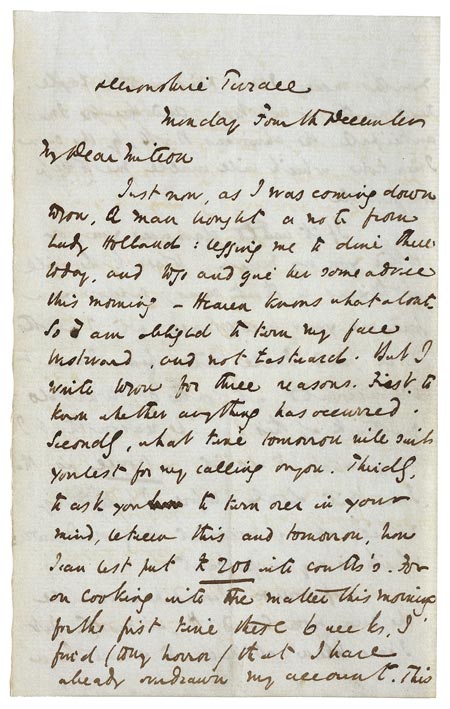 Devonshire Terrace
Monday Fourth December
My Dear Mitton
Just now, as I was coming down
to you, a man brought a note from
Lady Holland: begging me to dine there
today, and to go and give her some advice
this morning – Heaven knows what about.
So I am obliged to turn my face
Westward, and not Eastward. But I
write to you for three reasons. First, to
know whether anything has occurred.
Secondly, what time tomorrow will suit
you best for my calling on you. Thirdly,
to ask you to turn over in your
mind, between this and tomorrow, how
I can best put £200 into Coutts's. For
on looking into the matter this morning
for the first time these 6 weeks, I
find (to my horror) that I have
already overdrawn my account. This